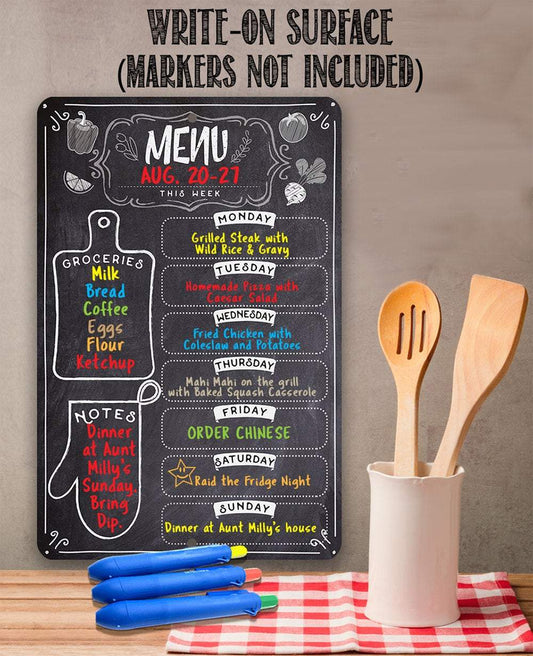 WRITE-ON SURFACE
(MARKERS NOT INCLUDED)
MENU
AUG. 20-27
THIS WEEK
GROCERIES
Milk
Bread
Coffee
Eggs
Flour
Ketchup
NOTES
Dinner
at Aunt
Milly's
Sunday.
Bring
Dip.
MONDAY
Grilled Steak with
Wild Rice & Gravy
TUESDAY
Homemade Pizza with
Caesar Salad
WEDNESDAY
Fried Chicken with
Coleslaw and Potatoes
THURSDAY
Mahi Mahi on the grill
with Baked Squash Casserole
FRIDAY
ORDER CHINESE
SATURDAY
Raid the Fridge Night
SUNDAY
Dinner at Aunt Milly's house